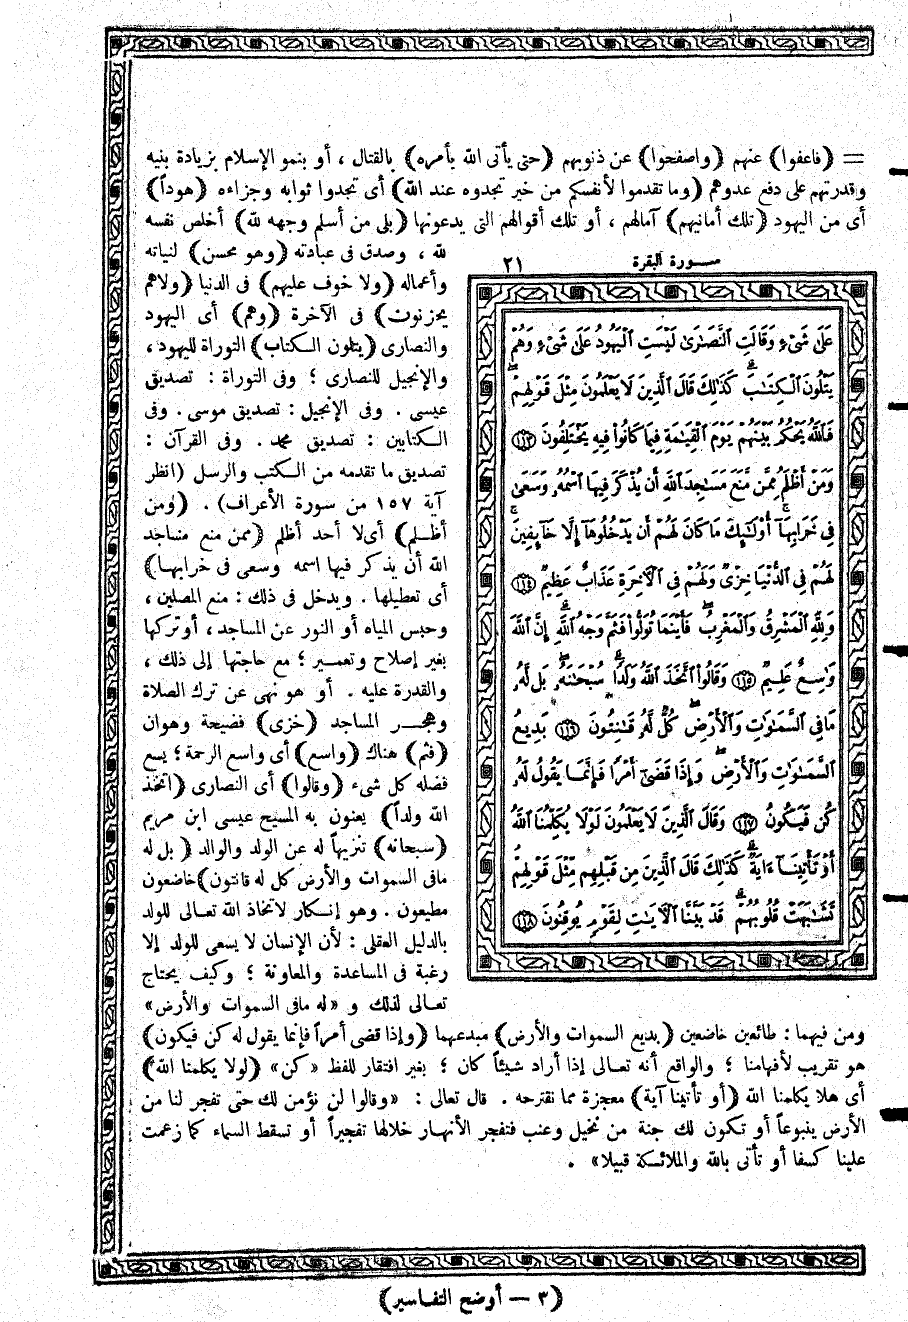 = (فاعفوا) عنهم (واصفحوا) عن ذنوبهم (حتى يأتى الله بأمره) بالقتال ، أو بنمو الإسلام بزيادة بنيه
وقدرتهم على دفع عدوهم (وما تقدموا لأنفسكم من خير تجدوه عند الله) أى تجدوا ثوابه وجزاءه (هوداً)
أى من اليهود (تلك أمانيهم) آمالهم ، أو تلك أقوالهم التى يدعونها (بلى من أسلم وجهه لله) أخلص نفسه
لله ، وصدق فى عبادته (وهو محسن) لنياته
وأعماله (ولا خوف عليهم) فى الدنيا (ولاهم
يحزنون) فى الآخرة (وهم) أى اليهود
والنصارى (يتلون الكتاب) التوراة لليهود ،
والإنجيل للنصارى ؛ وفى التوراة : تصديق
عيسى . وفى الإنجيل : تصديق موسى . وفى
الكتابين : تصديق محمد . وفى القرآن :
تصديق ما تقدمه من الكتب والرسل (انظر
آية ١٥٧ من سورة الأعراف) . (ومن
أظلم) أى لا أحد أظلم (ممن منع مساجد
الله أن يذكر فيها اسمه وسعى فى خرابها)
أى تعطيلها . ويدخل فى ذلك : منع المصلين ،
وحبس المياه أو النور عن المساجد ، أو تركها
بغير إصلاح وتعمير ؛ مع حاجتها إلى ذلك ،
والقدرة عليه . أو هو نهى عن ترك الصلاة
وهجر المساجد (خزى) فضيحة وهوان
(فثم) هناك (واسع) أى واسع الرحمة ؛ يسع
فضله كل شىء (وقالوا) أى النصارى (اتخذ
الله ولداً) يعنون به المسيح عيسى ابن مريم
(سبحانه) تنزيهاً له عن الولد والوالد (بل له
مافى السموات والأرض كل له قانتون) خاضعون
مطيعون . وهو إنكار لاتخاذ الله تعالى للولد
بالدليل العقلى : لأن الإنسان لا يسعى للولد إلا
رغبة فى المساعدة والمعاونة ؛ وكيف يحتاج
تعالى لذلك و «له مافى السموات والأرض»
سورة البقرة ٢١
عَلَىٰ شَىْءٍ وَقَالَتِ ٱلنَّصَٰرَىٰ لَيْسَتِ ٱلْيَهُودُ عَلَىٰ شَىْءٍ وَهُمْ
يَتْلُونَ ٱلْكِتَٰبَ ۗ كَذَٰلِكَ قَالَ ٱلَّذِينَ لَا يَعْلَمُونَ مِثْلَ قَوْلِهِمْ ۚ
فَٱللَّهُ يَحْكُمُ بَيْنَهُمْ يَوْمَ ٱلْقِيَٰمَةِ فِيمَا كَانُوا۟ فِيهِ يَخْتَلِفُونَ ﴿١١٣﴾
وَمَنْ أَظْلَمُ مِمَّن مَّنَعَ مَسَٰجِدَ ٱللَّهِ أَن يُذْكَرَ فِيهَا ٱسْمُهُۥ وَسَعَىٰ
فِى خَرَابِهَآ ۚ أُو۟لَٰٓئِكَ مَا كَانَ لَهُمْ أَن يَدْخُلُوهَآ إِلَّا خَآئِفِينَ ۚ
لَهُمْ فِى ٱلدُّنْيَا خِزْىٌ وَلَهُمْ فِى ٱلْءَاخِرَةِ عَذَابٌ عَظِيمٌ ﴿١١٤﴾
وَلِلَّهِ ٱلْمَشْرِقُ وَٱلْمَغْرِبُ ۚ فَأَيْنَمَا تُوَلُّوا۟ فَثَمَّ وَجْهُ ٱللَّهِ ۚ إِنَّ ٱللَّهَ
وَٰسِعٌ عَلِيمٌ ﴿١١٥﴾ وَقَالُوا۟ ٱتَّخَذَ ٱللَّهُ وَلَدًا ۗ سُبْحَٰنَهُۥ ۖ بَل لَّهُۥ
مَا فِى ٱلسَّمَٰوَٰتِ وَٱلْأَرْضِ ۖ كُلٌّ لَّهُۥ قَٰنِتُونَ ﴿١١٦﴾ بَدِيعُ
ٱلسَّمَٰوَٰتِ وَٱلْأَرْضِ ۖ وَإِذَا قَضَىٰٓ أَمْرًا فَإِنَّمَا يَقُولُ لَهُۥ
كُن فَيَكُونُ ﴿١١٧﴾ وَقَالَ ٱلَّذِينَ لَا يَعْلَمُونَ لَوْلَا يُكَلِّمُنَا ٱللَّهُ
أَوْ تَأْتِينَآ ءَايَةٌ ۗ كَذَٰلِكَ قَالَ ٱلَّذِينَ مِن قَبْلِهِم مِّثْلَ قَوْلِهِمْ ۘ
تَشَٰبَهَتْ قُلُوبُهُمْ ۗ قَدْ بَيَّنَّا ٱلْءَايَٰتِ لِقَوْمٍ يُوقِنُونَ ﴿١١٨﴾
ومن فيهما : طائعين خاضعين (بديع السموات والأرض) مبدعهما (وإذا قضى أمراً فإنما يقول له كن فيكون)
هو تقريب لأفهامنا ؛ والواقع أنه تعالى إذا أراد شيئاً كان ؛ بغير افتقار للفظ «كن» (لولا يكلمنا الله)
أى هلا يكلمنا الله (أو تأتينا آية) معجزة مما نقترحه . قال تعالى : «وقالوا لن نؤمن لك حتى تفجر لنا من
الأرض ينبوعاً أو تكون لك جنة من نخيل وعنب فتفجر الأنهار خلالها تفجيراً أو تسقط السماء كما زعمت
علينا كسفا أو تأتى بالله والملائكة قبيلا» .
(٣ — أوضح التفاسير)